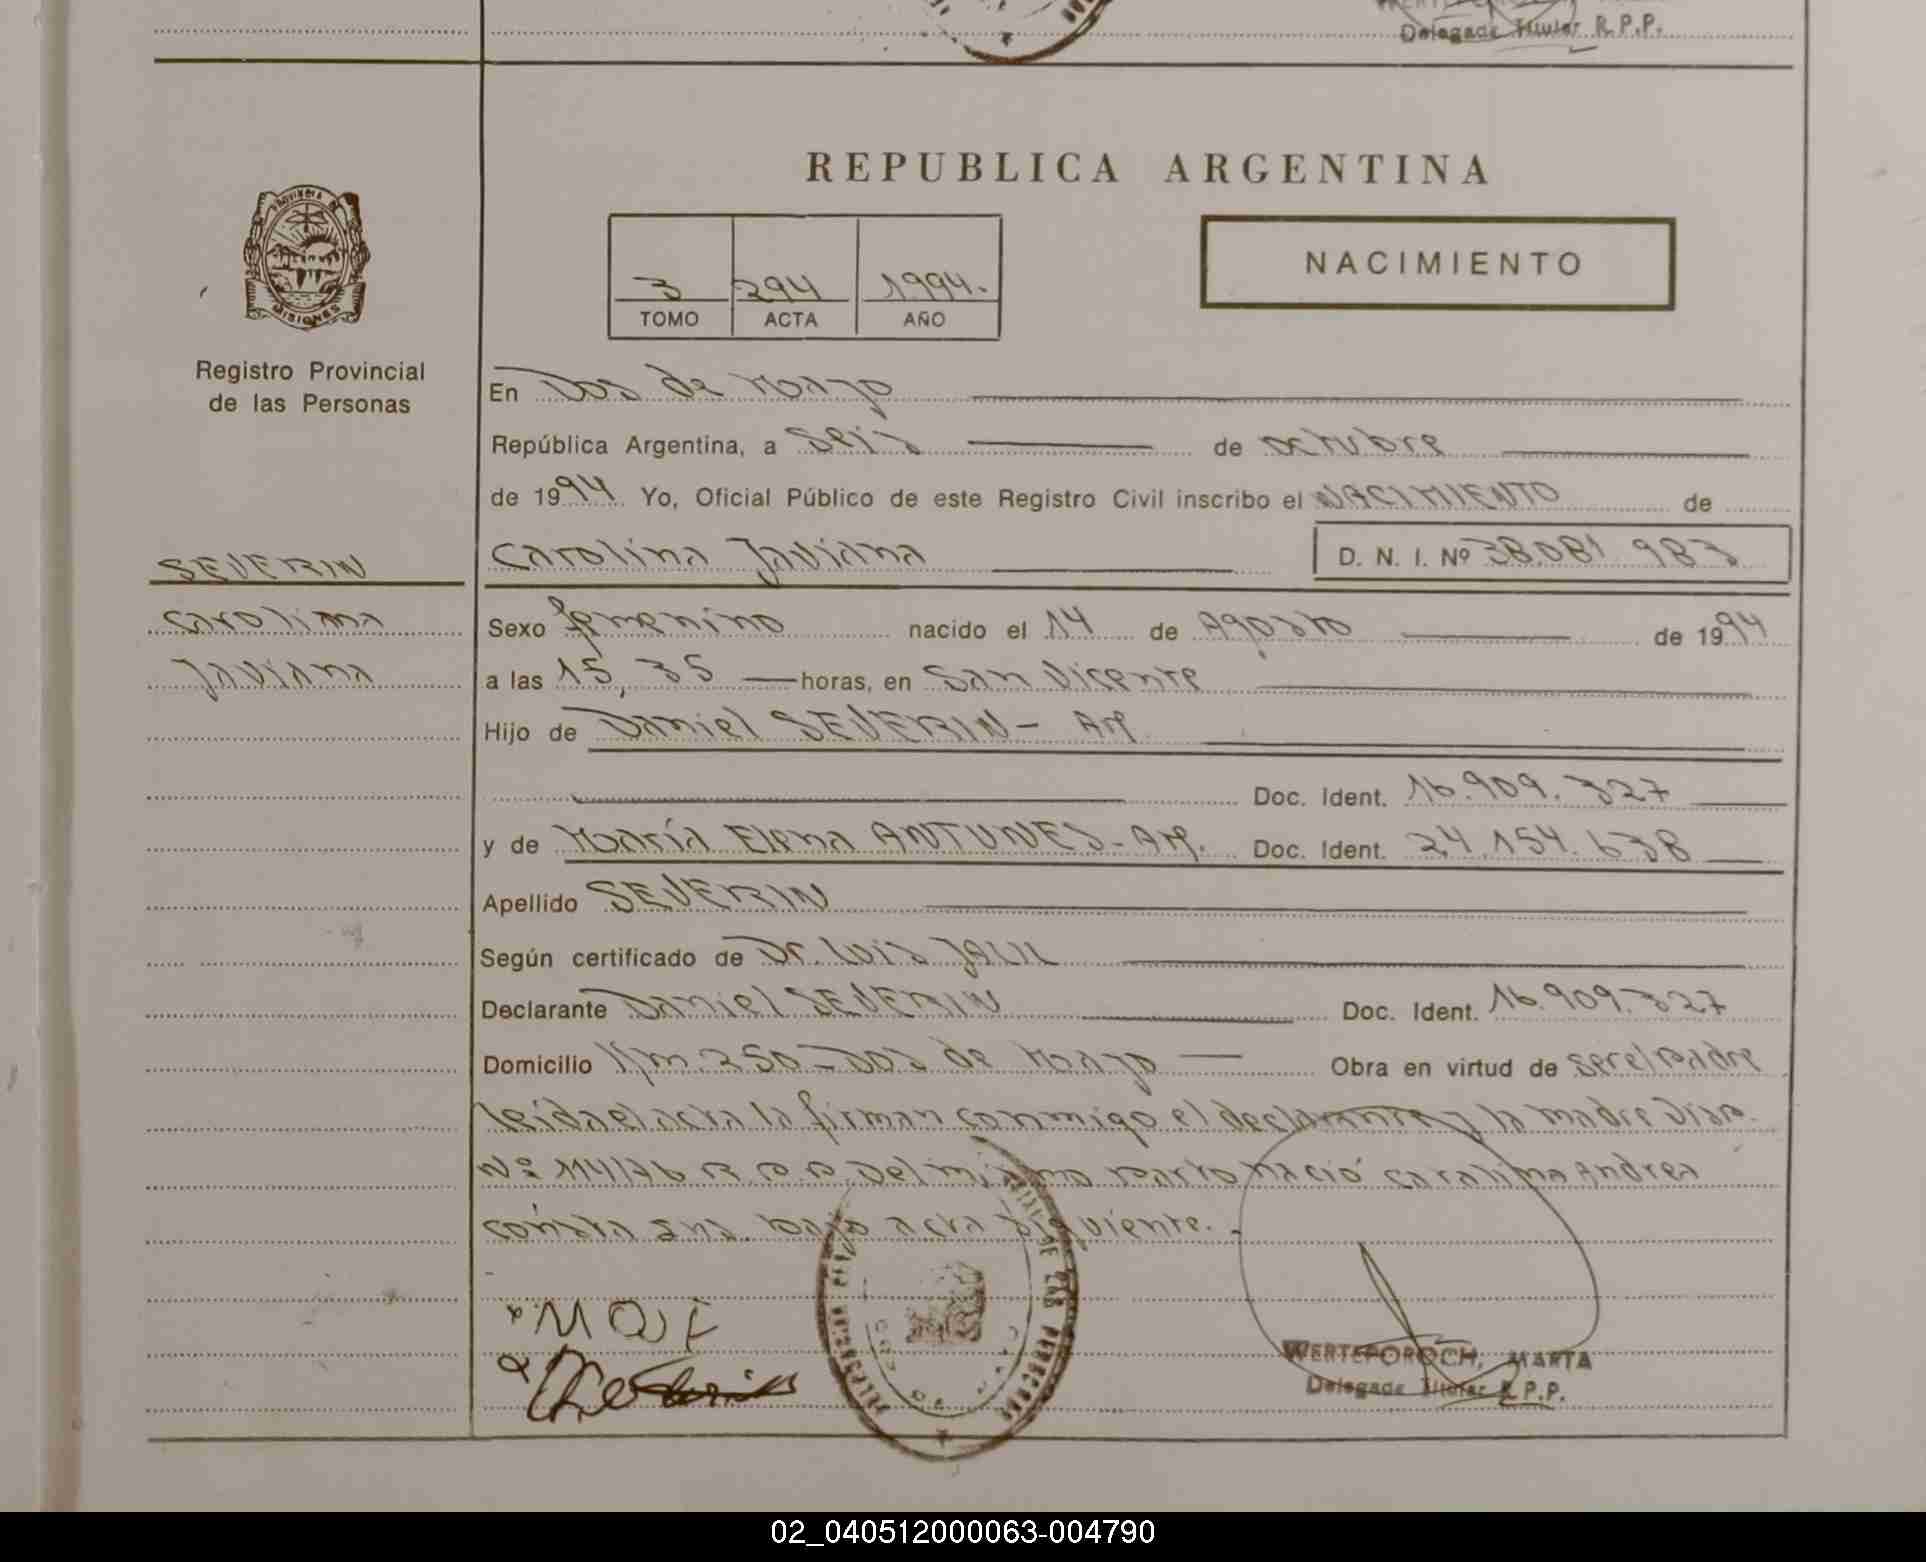 Delegade Titular R.P.P.
REPUBLICA ARGENTINA
PROVINCIA DE
MISIONES
Registro Provincial
de las Personas
3 294 1994.
TOMO ACTA AÑO
NACIMIENTO
En Dos de Mayo
República Argentina, a seis de octubre
de 1994 Yo, Oficial Público de este Registro Civil inscribo el NACIMIENTO de
SEVERIN
Carolina
Javiana
Carolina Javiana D. N. I. Nº 38.081.983
Sexo femenino nacido el 14 de Agosto de 1994
a las 15,35 horas, en San Vicente
Hijo de Daniel SEVERIN - Ar.
Doc. Ident. 16.909.327
y de María Elena ANTUNES - Ar. Doc. Ident. 24.154.638
Apellido SEVERIN
Según certificado de Dr. Luis JALIL
Declarante Daniel SEVERIN Doc. Ident. 16.909.327
Domicilio Km. 250 - Dos de Mayo Obra en virtud de ser el padre
leida el acta la firman conmigo el declarante y la madre Disp.
Nº 114/76 R.P.P. Del mismo parto nació Carolina Andrea
consta sns. bajo acta siguiente.-
WERTEPOROCH, MARTA
Delegade Titular R.P.P.
02_040512000063-004790